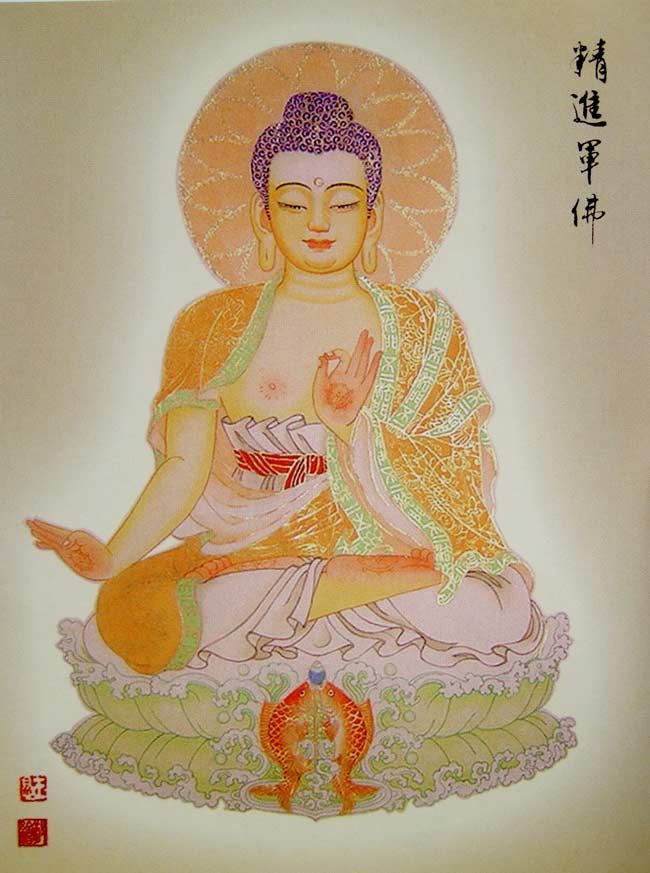 精進軍佛